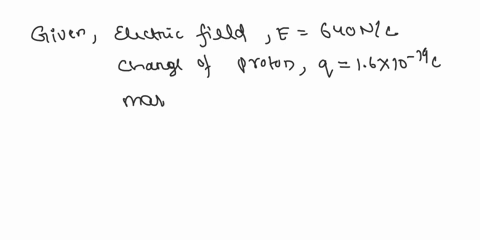 Given, Electric field, E = 640 N/C
Charge of proton, q = 1.6×10⁻¹⁹C
mas